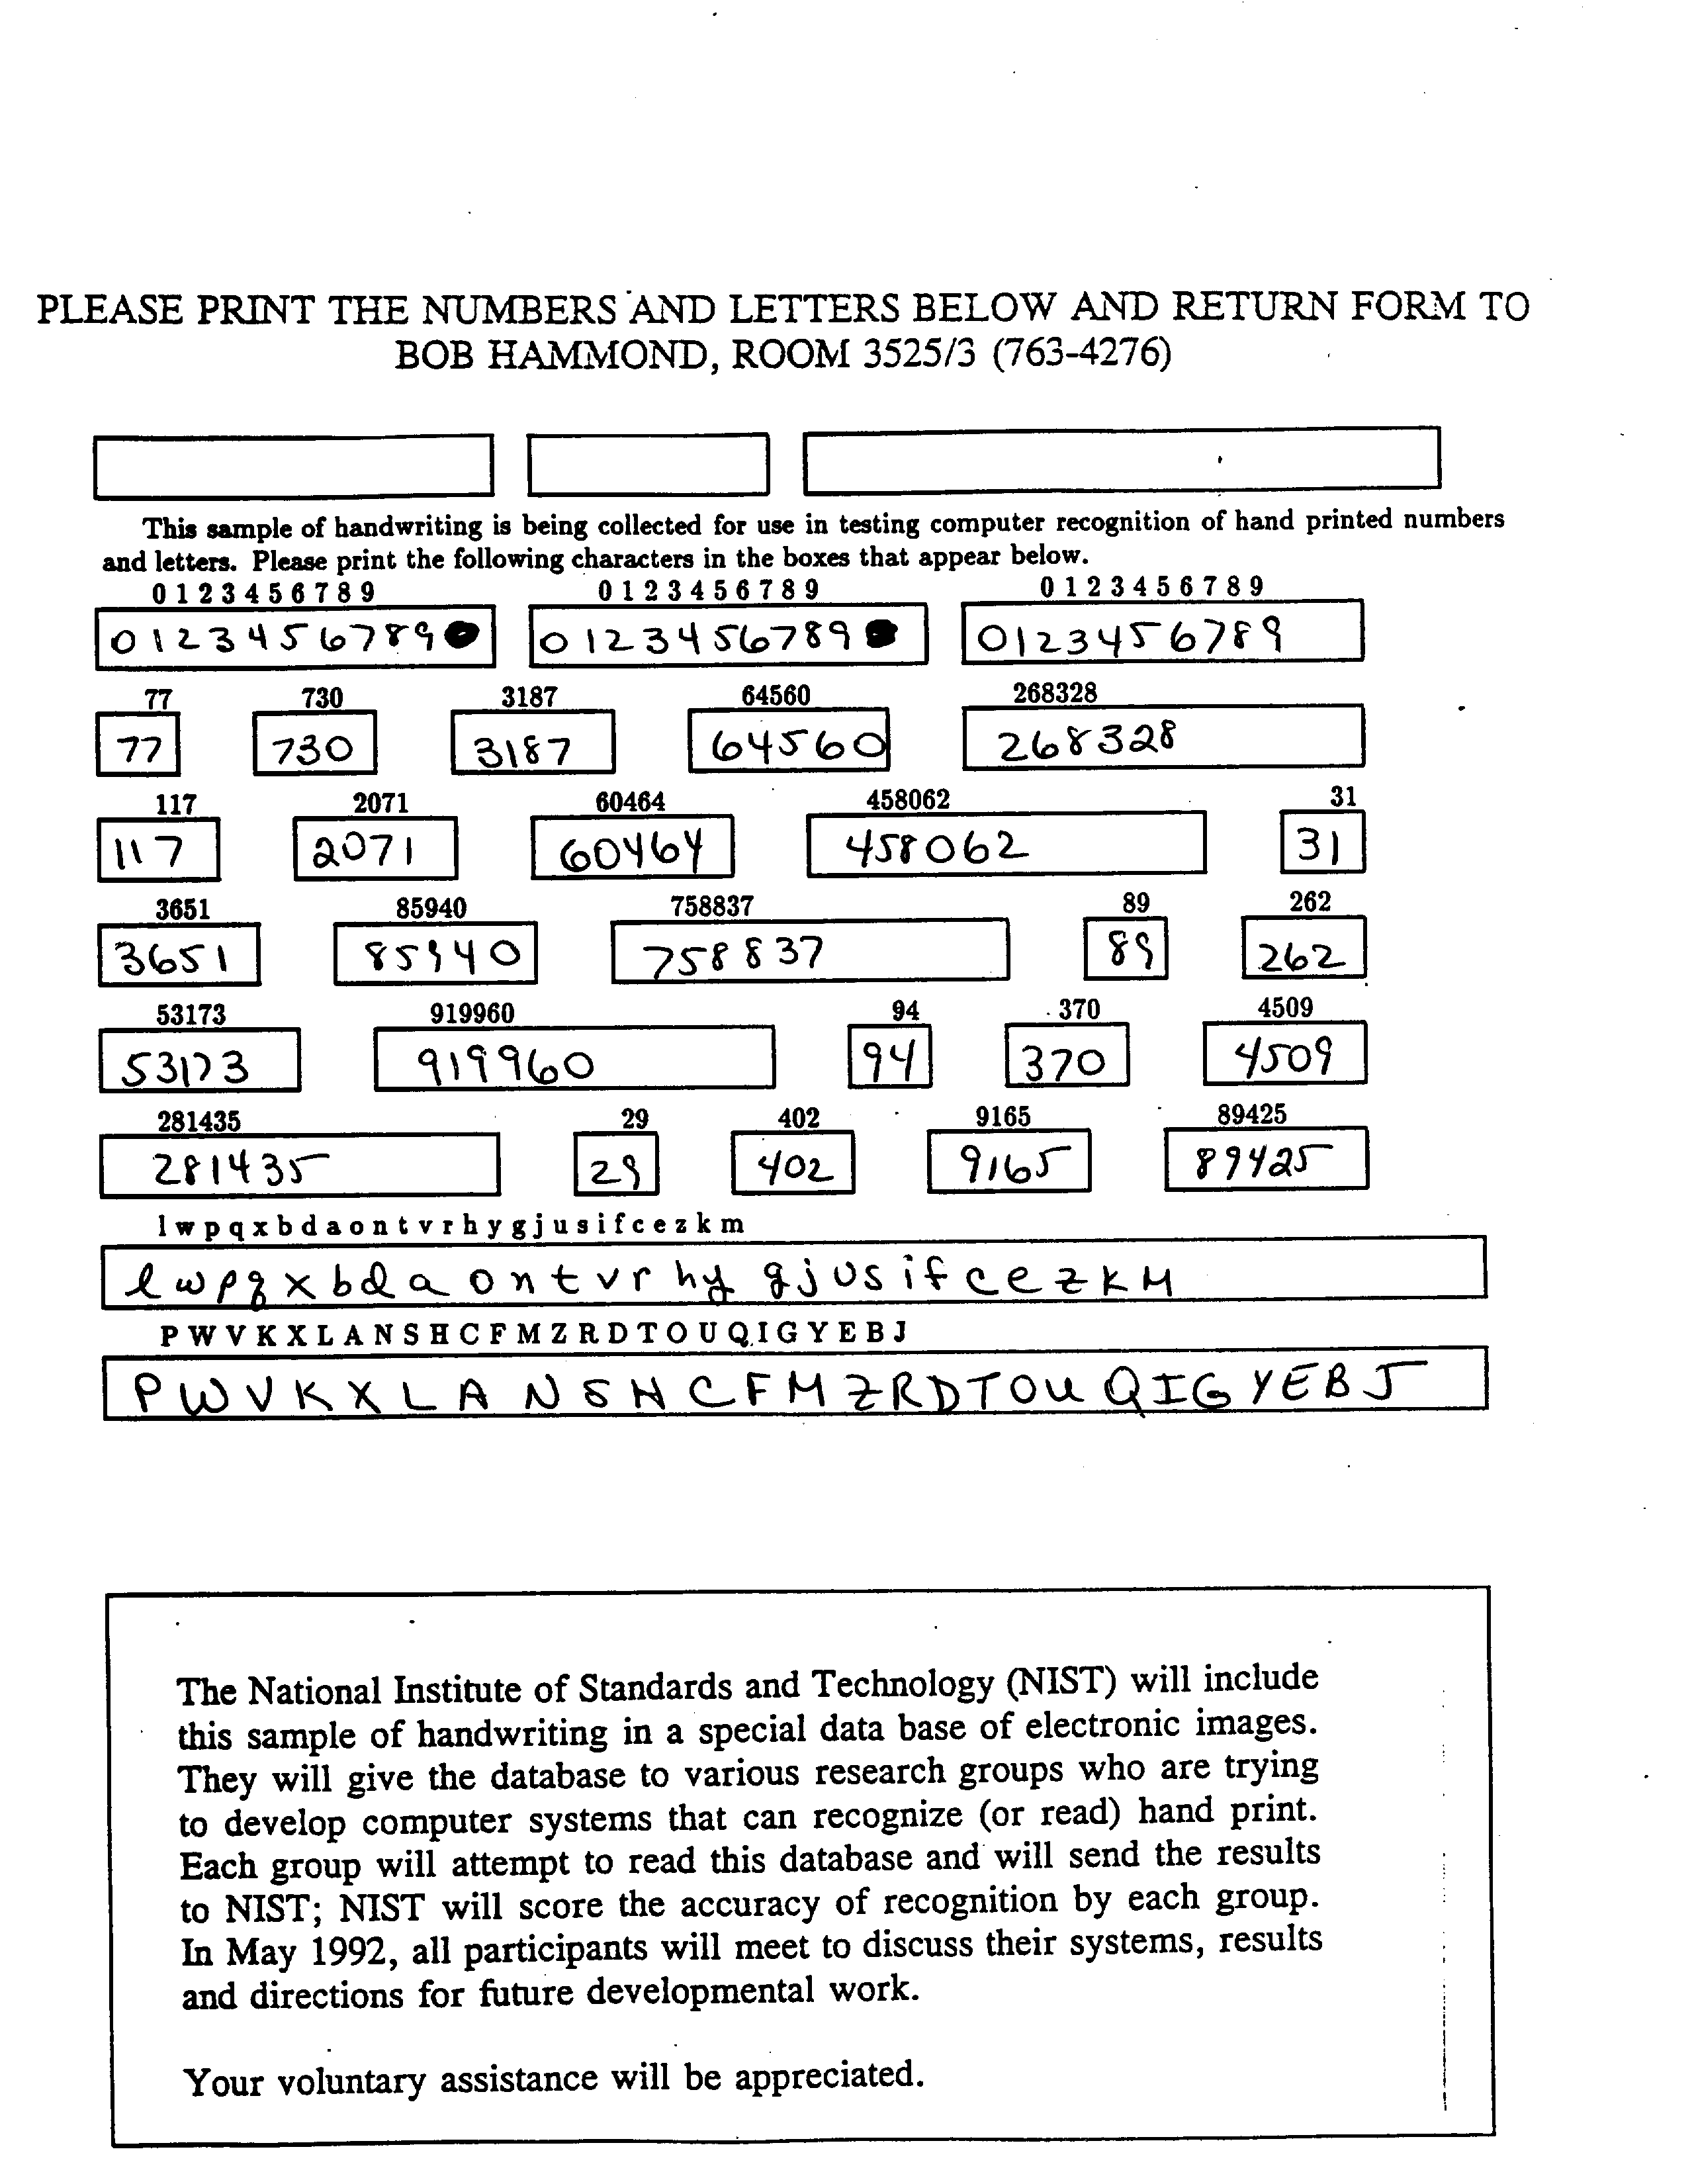 PLEASE PRINT THE NUMBERS AND LETTERS BELOW AND RETURN FORM TO
BOB HAMMOND, ROOM 3525/3 (763-4276)
This sample of handwriting is being collected for use in testing computer recognition of hand printed numbers
and letters. Please print the following characters in the boxes that appear below.
0 1 2 3 4 5 6 7 8 9 0 1 2 3 4 5 6 7 8 9 0 1 2 3 4 5 6 7 8 9
0123456789 0123456789 0123456789
77 730 3187 64560 268328
77 730 3187 64560 268328
117 2071 60464 458062 31
117 2071 60464 458062 31
3651 85940 758837 89 262
3651 85940 758837 89 262
53173 919960 94 370 4509
53173 919960 94 370 4509
281435 29 402 9165 89425
281435 29 402 9165 89425
l w p q x b d a o n t v r h y g j u s i f c e z k m
l w p q x b d a o n t v r h y g j u s i f c e z k m
P W V K X L A N S H C F M Z R D T O U Q I G Y E B J
P W V K X L A N S H C F M Z R D T O U Q I G Y E B J
The National Institute of Standards and Technology (NIST) will include
this sample of handwriting in a special data base of electronic images.
They will give the database to various research groups who are trying
to develop computer systems that can recognize (or read) hand print.
Each group will attempt to read this database and will send the results
to NIST; NIST will score the accuracy of recognition by each group.
In May 1992, all participants will meet to discuss their systems, results
and directions for future developmental work.
Your voluntary assistance will be appreciated.